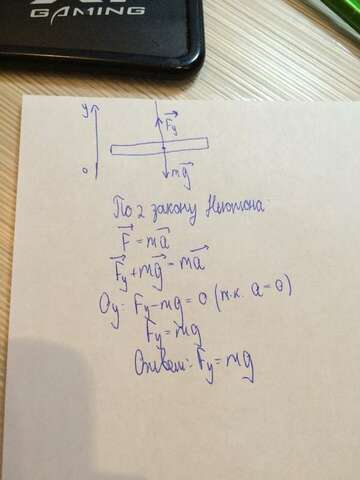 GAMING
y
F⃗y
0
mg⃗
По 2 закону Ньютона
F⃗ = ma⃗
F⃗y + mg⃗ = ma⃗
Oy: Fy - mg = 0 (т.к. a = 0)
Fy = mg
Ответ: Fy = mg